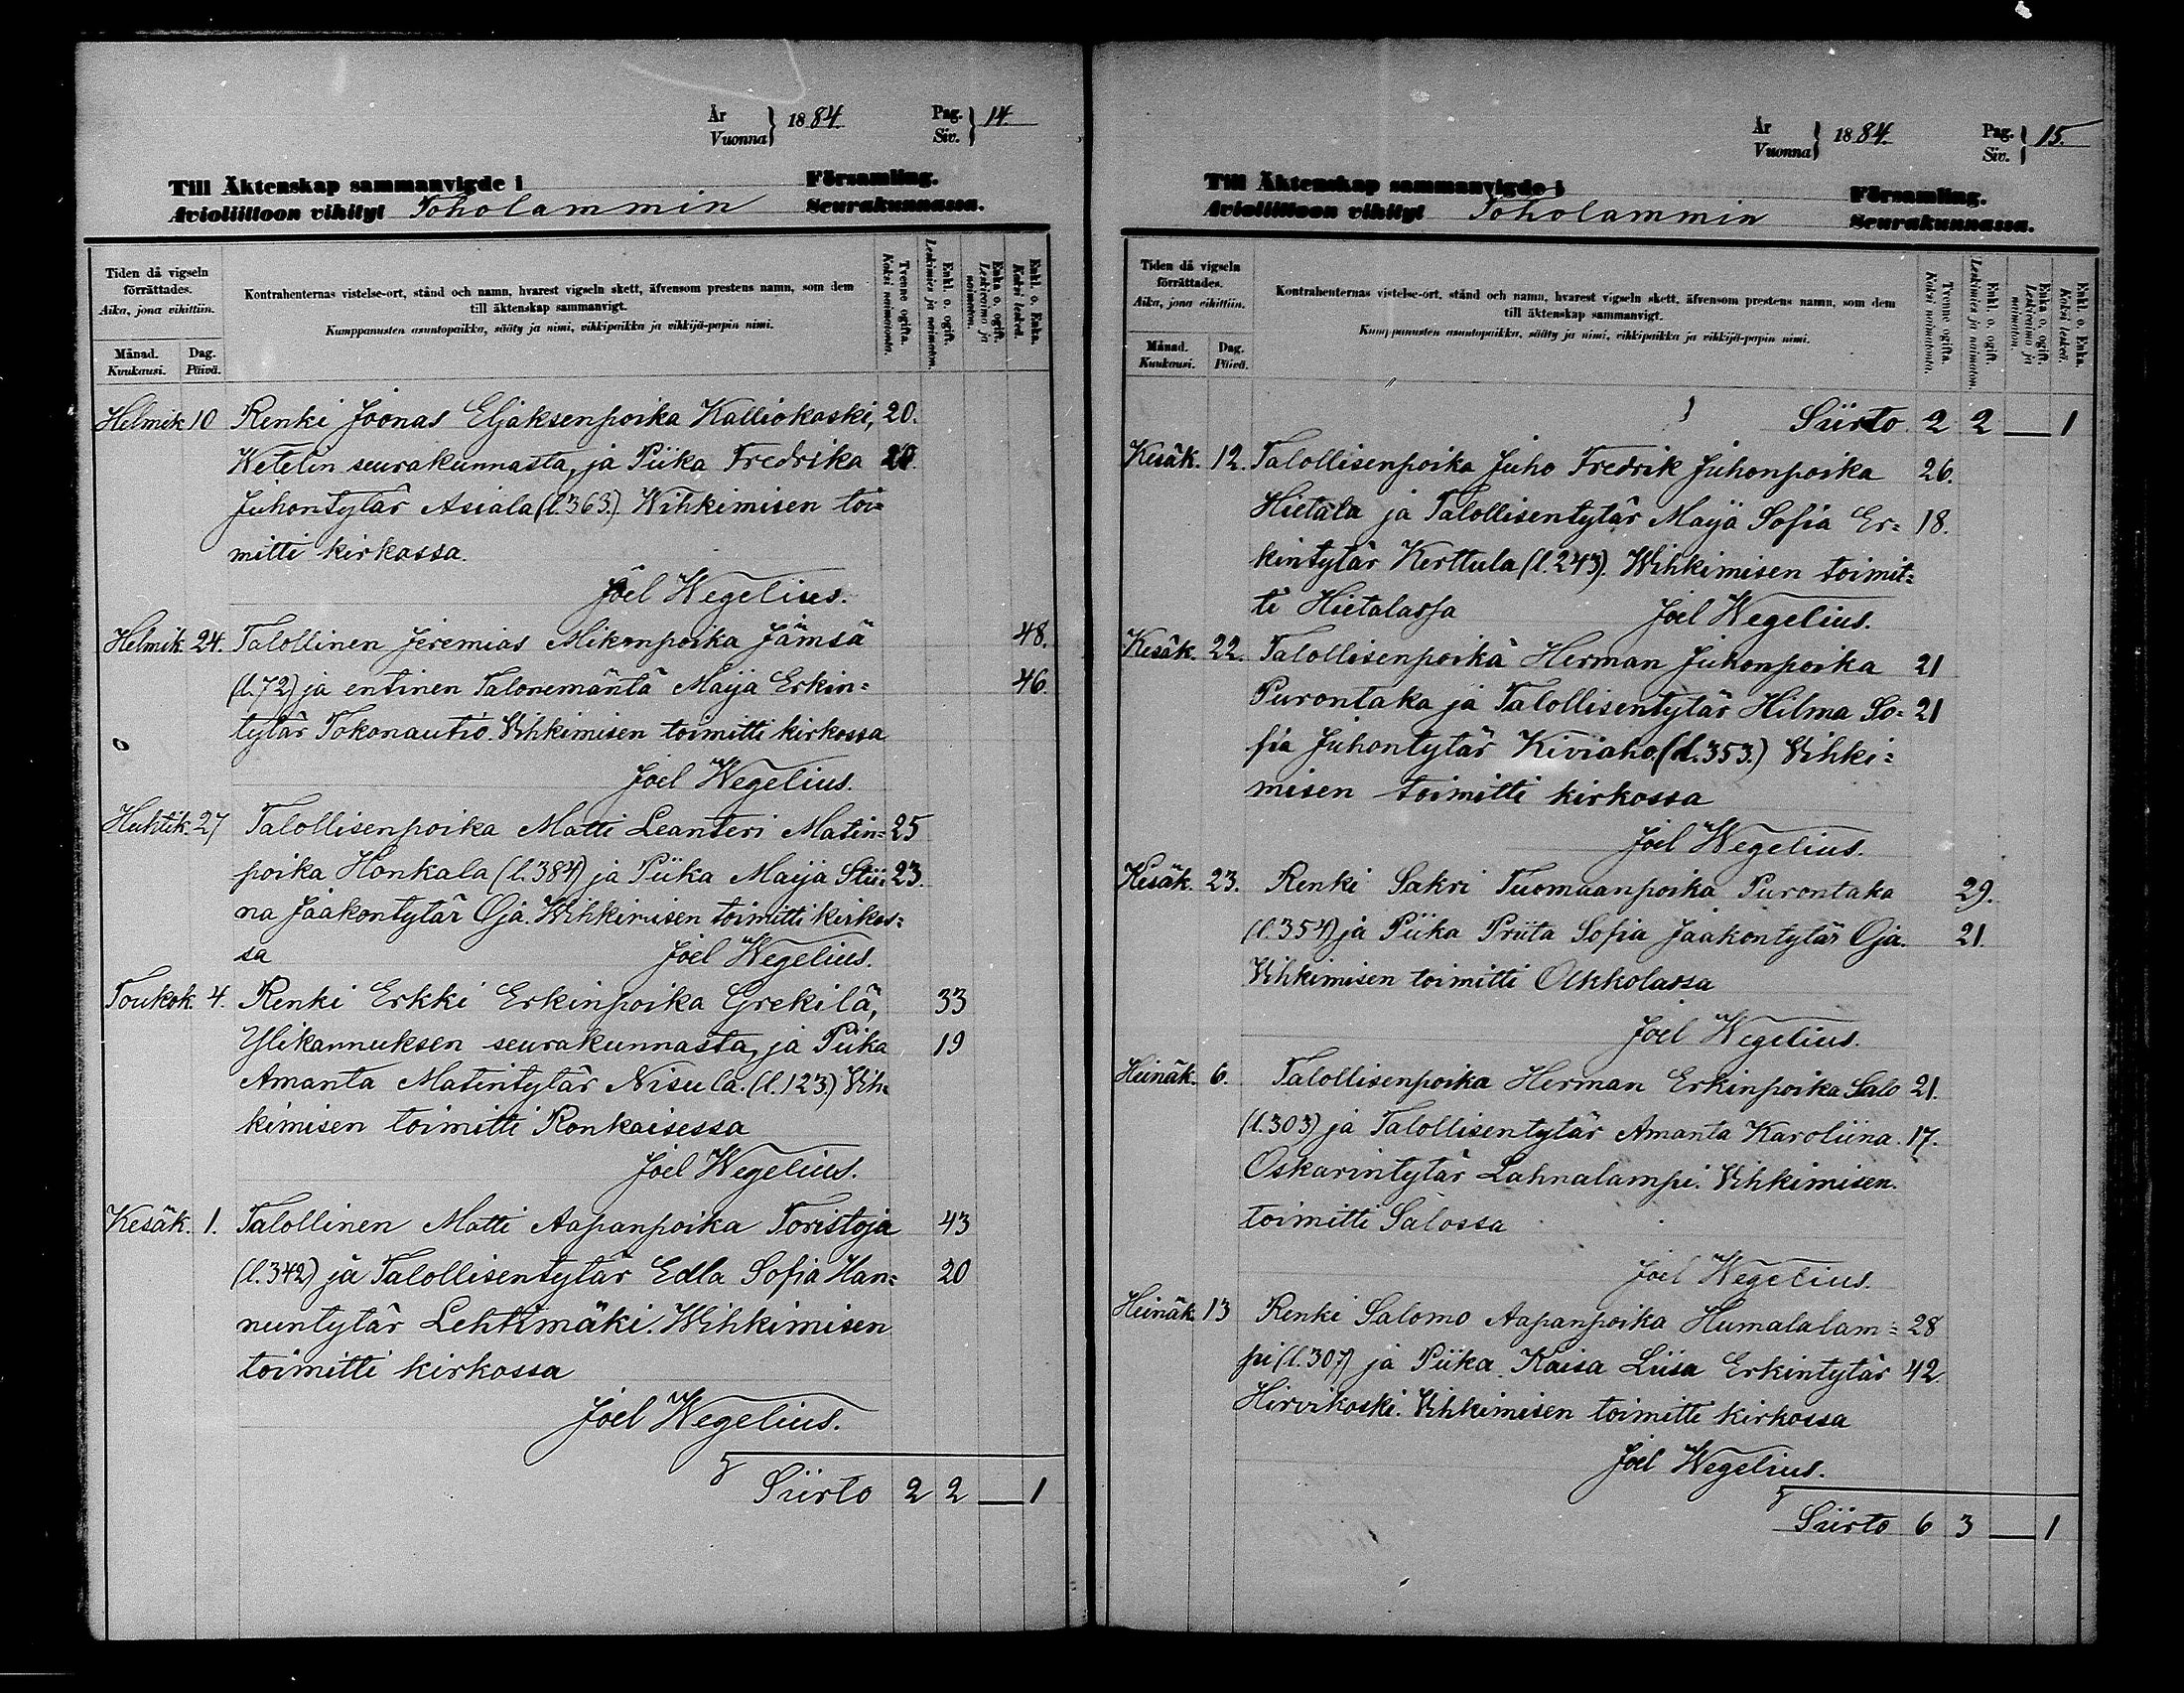 År
Vuonna } 1884. Pag.
Siv. } 14.
Till Äktenskap sammanvigde i Församling.
Avioliittoon vihityt Toholammin Seurakunnassa.
Tiden då vigseln förrättades.
Aika, jona vikittiin.
Månad.
Kuukausi.
Dag.
Päivä.
Kontrahenternas vistelse-ort, stånd och namn, hvarest vigseln skett, äfvensom prestens namn, som dem
till äktenskap sammanvigt.
Kumppanusten asuntopaikka, sääty ja nimi, vihkipaikka ja vihkijä-papin nimi.
Tvenne ogifta.
Kaksi naimatonta.
Enkl. o. ogift.
Leskimies ja naimaton.
Enka o. ogift.
Leskivaimo ja naimaton.
Enkl. o. Enka.
Kaksi leskeä.
Helmik 10 Renki Joonas Eljaksenpoika Kalliokoski, 20.
Wetelin seurakunnasta, ja Piika Fredrika 20.
Juhontytär Asiala (l.363.) Wihkimisen toi=
mitti kirkossa.
Joel Wegelius.
Helmik 24. Talollinen Jeremias Mikonpoika Jämsä 48.
(l.72) ja entinen Talonemäntä Maija Erkin= 46.
tytär Tokonautio. Vihkimisen toimitti kirkossa
Joel Wegelius.
Huhtik. 27 Talollisenpoika Matti Leanteri Matin= 25
poika Honkala (l.384) ja Piika Maija Stii= 23.
na Jaakontytär Oja. Wihkimisen toimitti kirkos=
sa Joel Wegelius.
Toukok. 4. Renki Erkki Erkinpoika Grekilä, 33
Ylikannuksen seurakunnasta, ja Piika 19
Amanta Matintytär Nisula. (l.123.) Vih=
kimisen toimitti Ronkaisessa
Joel Wegelius.
Kesäk. 1. Talollinen Matti Aapanpoika Toristoja 43
(l.342) ja Talollisentytär Edla Sofia Han= 20
nuntytär Lehtimäki. Wihkimisen
toimitti kirkossa
Joel Wegelius.
Siirto 2 2 — 1
År
Vuonna } 1884. Pag.
Siv. } 15.
Till Äktenskap sammanvigde i Församling.
Avioliittoon vihityt Toholammin Seurakunnassa.
Tiden då vigseln förrättades.
Aika, jona vikittiin.
Månad.
Kuukausi.
Dag.
Päivä.
Kontrahenternas vistelse-ort, stånd och namn, hvarest vigseln skett, äfvensom prestens namn, som dem
till äktenskap sammanvigt.
Kumppanusten asuntopaikka, sääty ja nimi, vihkipaikka ja vihkijä-papin nimi.
Tvenne ogifta.
Kaksi naimatonta.
Enkl. o. ogift.
Leskimies ja naimaton.
Enka o. ogift.
Leskivaimo ja naimaton.
Enkl. o. Enka.
Kaksi leskeä.
Siirto 2 2 — 1
Kesäk. 12. Talollisenpoika Juho Fredrik Juhonpoika 26.
Hietala ja Talollisentytär Maija Sofia Er= 18.
kintytär Kerttula (l.243). Wihkimisen toimit=
ti Hietalassa Joel Wegelius.
Kesäk. 22. Talollisenpoika Herman Juhonpoika 21
Purontaka ja Talollisentytär Hilma So= 21
fia Juhontytär Kiviaho. (l.353.) Vihki=
misen toimitti kirkossa
Joel Wegelius.
Kesäk. 23. Renki Sakri Tuomaanpoika Purontaka 29.
(l.354) ja Piika Priita Sofia Jaakontytär Oja. 21.
Vihkimisen toimitti Olkkolassa
Joel Wegelius.
Heinäk. 6. Talollisenpoika Herman Erkinpoika Salo 21.
(l.303) ja Talollisentytär Amanta Karoliina 17.
Oskarintytär Lahnalampi. Vihkimisen
toimitti Salossa
Joel Wegelius.
Heinäk. 13 Renki Salomo Aapanpoika Humalalam= 28
pi (l.307) ja Piika Kaisa Liisa Erkintytär 42.
Hirvikoski. Vihkimisen toimitti kirkossa
Joel Wegelius.
Siirto 6 3 — 1